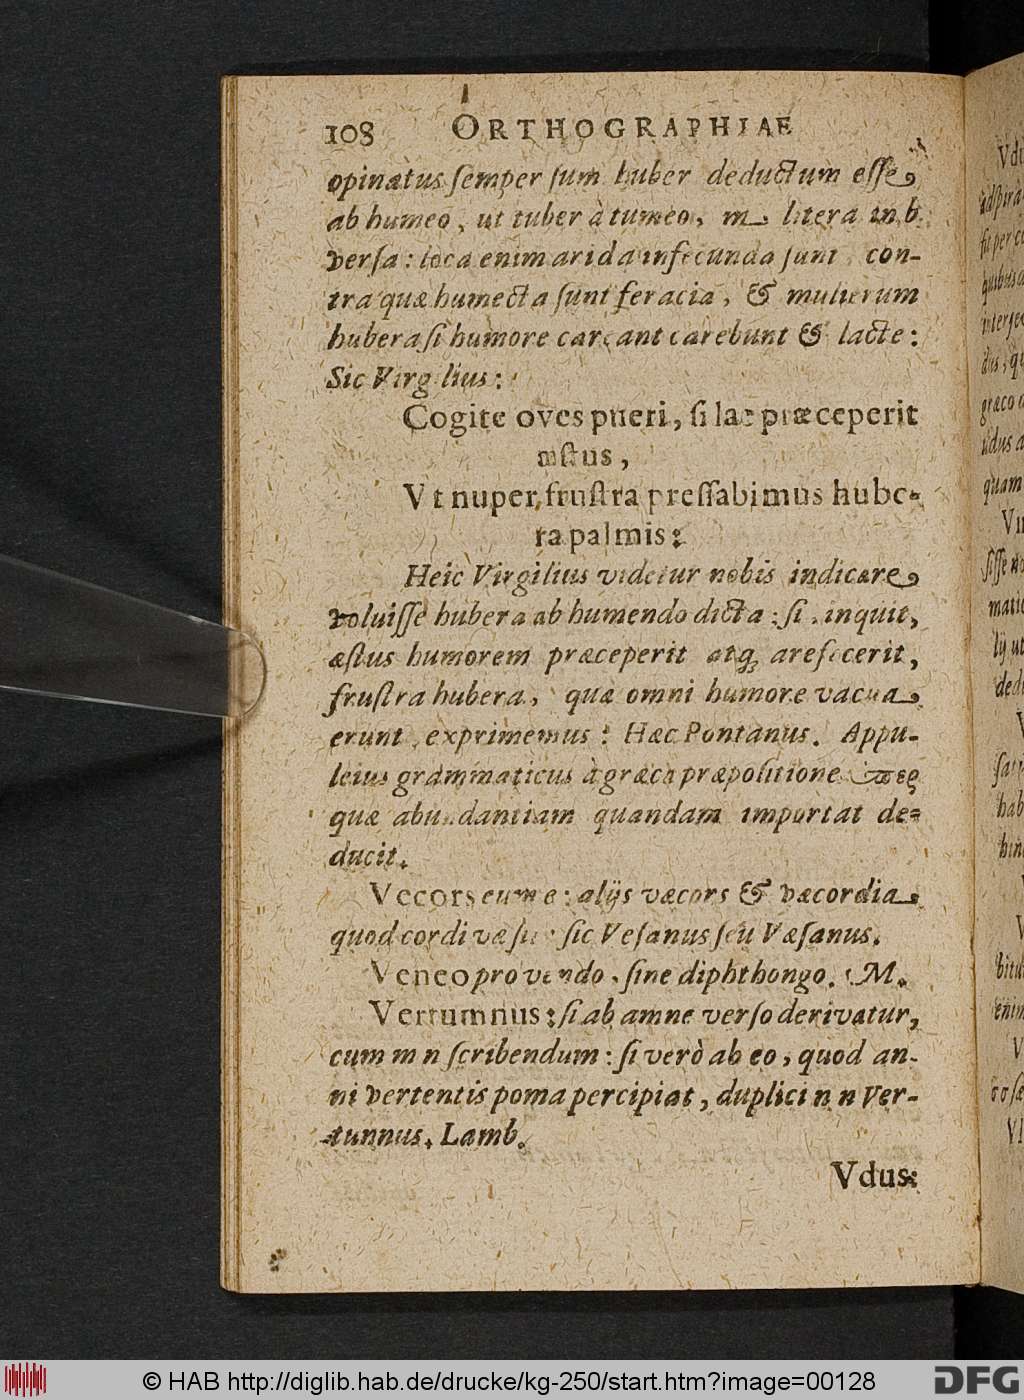 108 ORTHOGRAPHIAE
opinatus ſemper ſum huber deductum eſſe,
ab humeo, ut tuber à tumeo, m litera in b
verſa: loca enim arida infecunda ſunt, con-
tra quæ humecta ſunt feracia, & mulierum
hubera ſi humore careant carebunt & lacte:
Sic Virgilius:
Cogite oves pueri, ſi lac præceperit
æſtus,
Vt nuper, fruſtra preſſabimus hube-
ra palmis:
Heic Virgilius videtur nobis indicare,
voluiſſe hubera ab humendo dicta: ſi, inquit,
æſtus humorem præceperit atq; arefecerit,
fruſtra hubera, quæ omni humore vacua,
erunt, exprimemus: Hæc Pontanus. Appu-
leius grammaticus à græca præpoſitione
quæ abundantiam quandam importat de-
ducit.
Vecors cum e: alijs væcors & væcordia,
quod cordi væ ſit: ſic Veſanus ſeu Væſanus.
Veneo pro vendo, ſine diphthongo. M.
Vertumnus: ſi ab amne verſo derivatur,
cum m n ſcribendum: ſi verò ab eo, quod an-
ni vertentis poma percipiat, duplici n n Ver-
tunnus. Lamb.
Vdus:
© HAB http://diglib.hab.de/drucke/kg-250/start.htm?image=00128
DFG